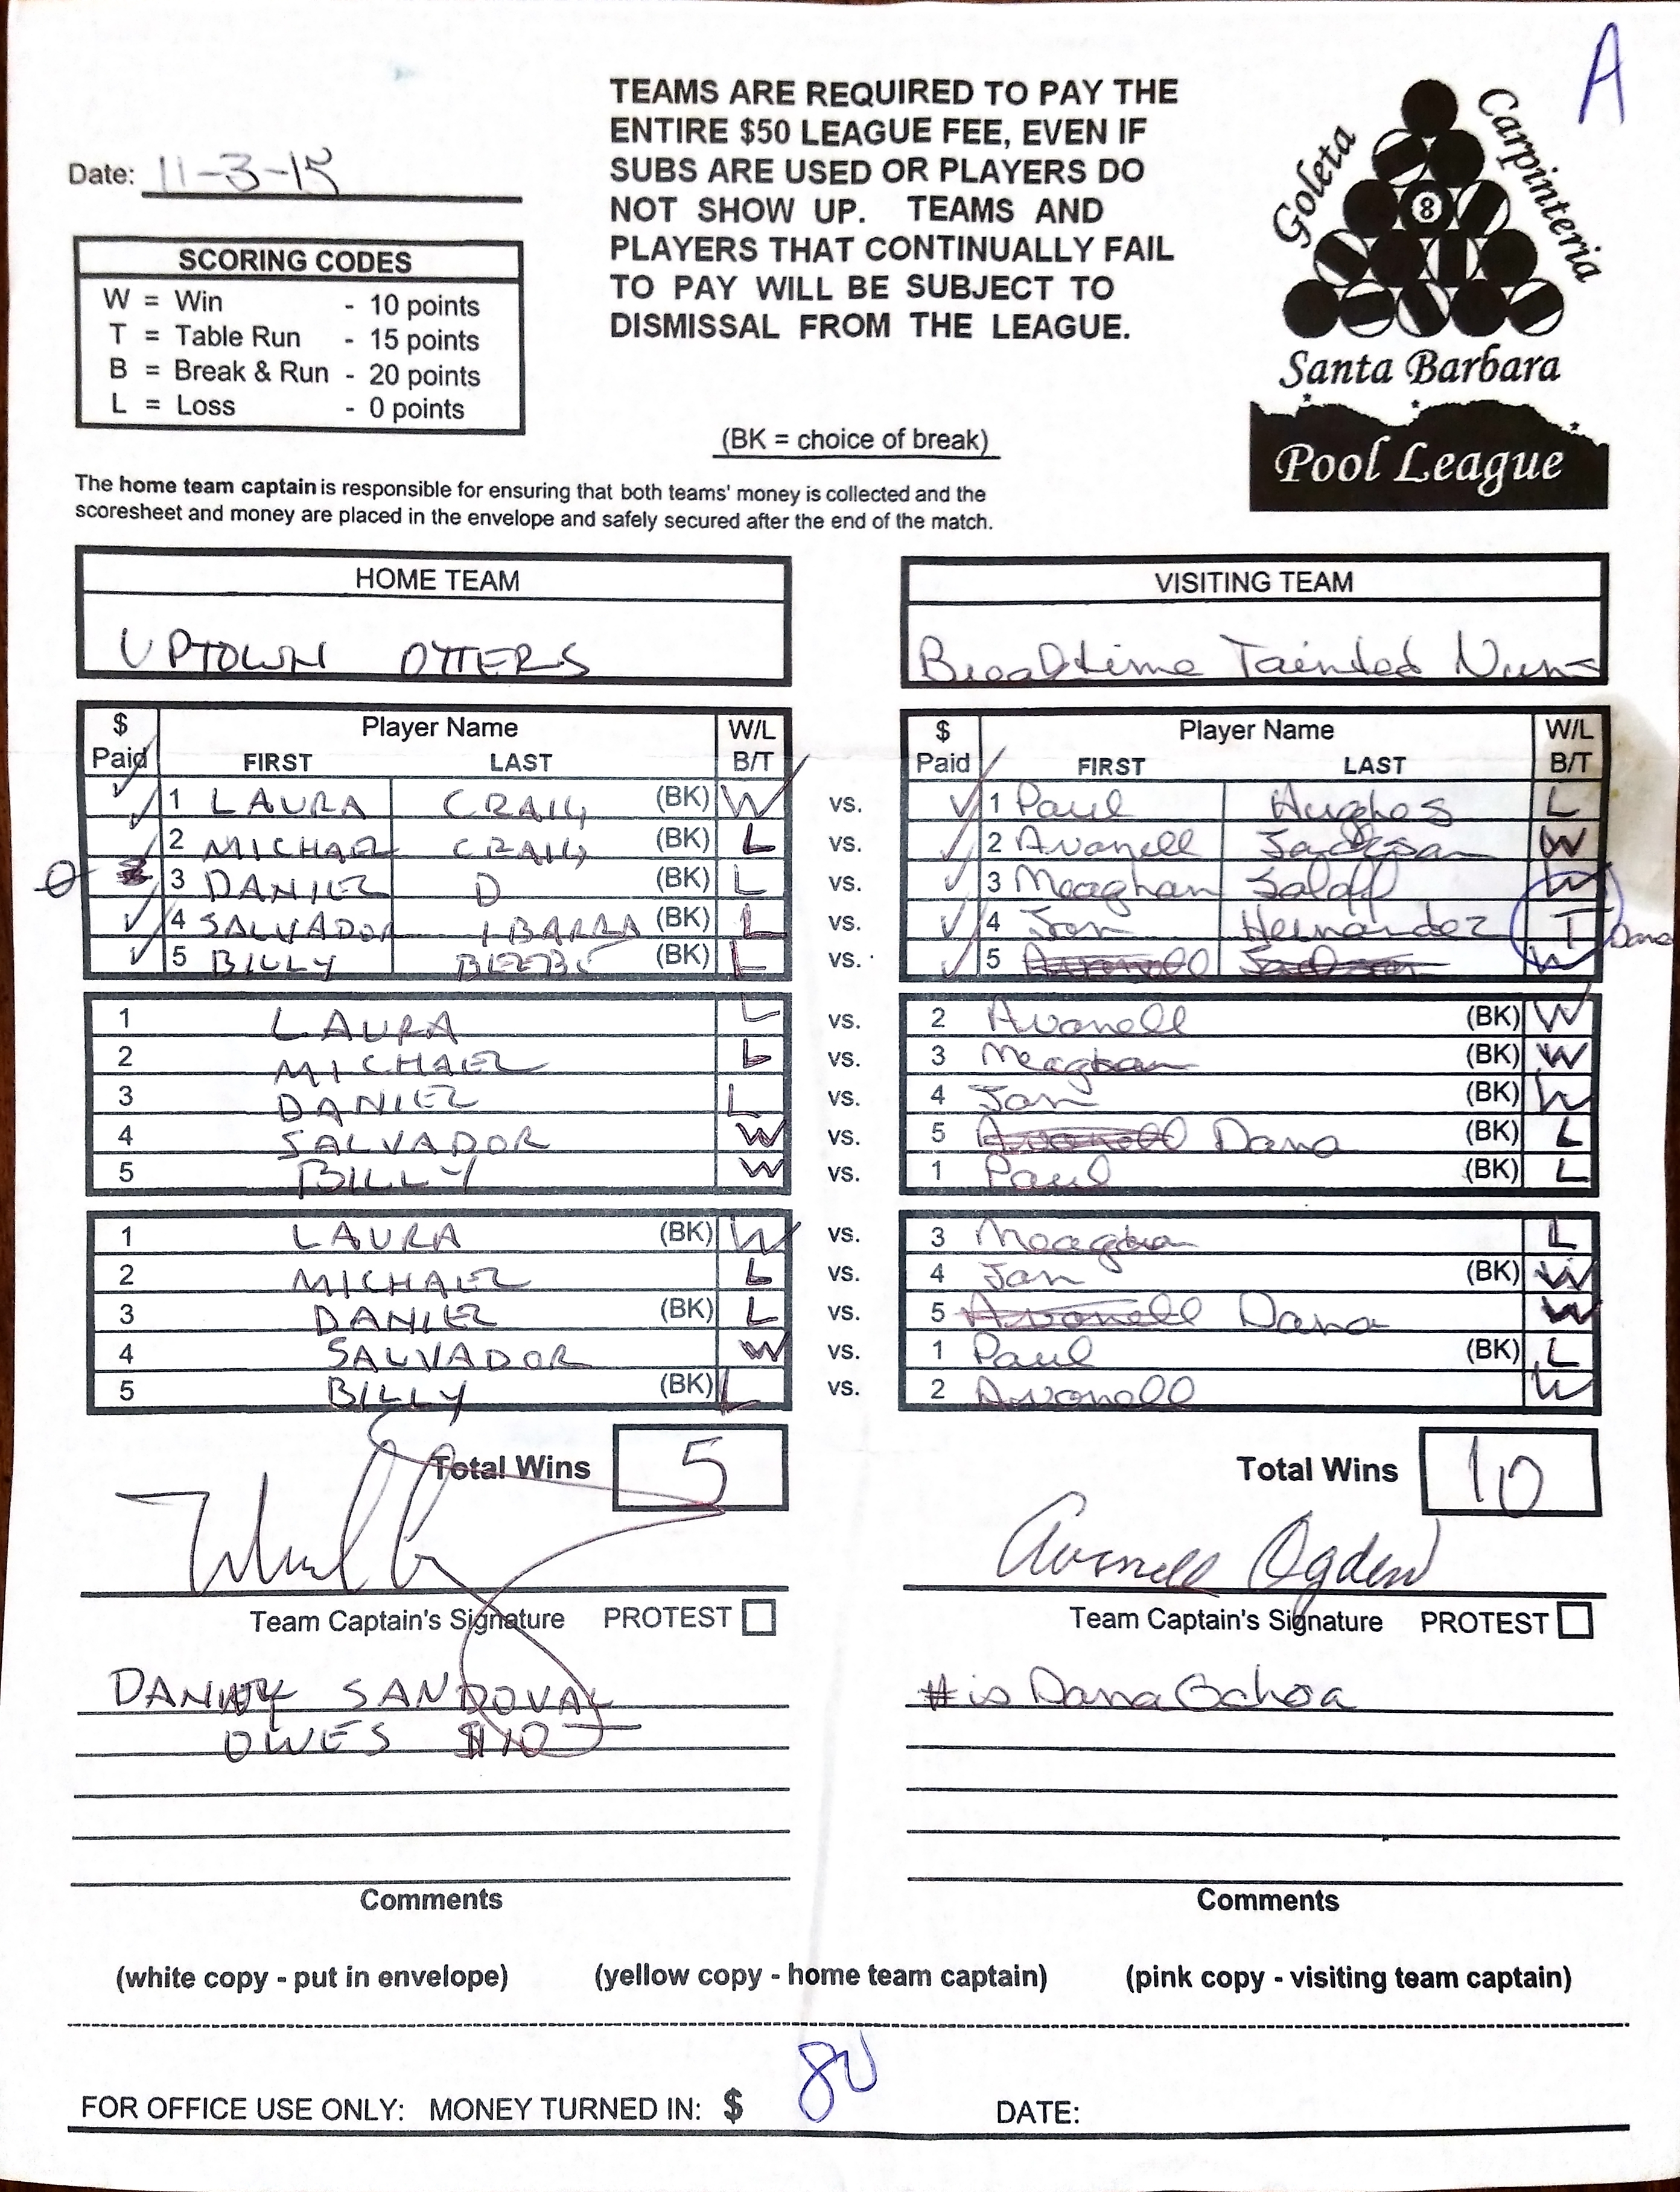 A
TEAMS ARE REQUIRED TO PAY THE
ENTIRE $50 LEAGUE FEE, EVEN IF
SUBS ARE USED OR PLAYERS DO
NOT SHOW UP. TEAMS AND
PLAYERS THAT CONTINUALLY FAIL
TO PAY WILL BE SUBJECT TO
DISMISSAL FROM THE LEAGUE.
Date: 11-3-15
SCORING CODES
W = Win - 10 points
T = Table Run - 15 points
B = Break & Run - 20 points
L = Loss - 0 points
(BK = choice of break)
Goleta
Carpinteria
8
Santa Barbara
Pool League
The home team captain is responsible for ensuring that both teams' money is collected and the
scoresheet and money are placed in the envelope and safely secured after the end of the match.
HOME TEAM VISITING TEAM
UPTOWN OTTERS Tainted Nuns
$ Player Name W/L $ Player Name W/L
Paid FIRST LAST B/T Paid FIRST LAST B/T
✓ 1 LAURA CRAIG (BK) W vs. ✓ 1 Paul Hughes L
✓ 2 MICHAEL CRAIG (BK) L vs. ✓ 2 Avonell Jackson W
3 DANIEL D (BK) L vs. ✓ 3 Meaghan W
✓ 4 SALVADOR IBARRA (BK) L vs. ✓ 4 Jan Hernandez T Dana
✓ 5 BILLY BEEBE (BK) L vs. ✓ 5 Avonell Jackson W
1 LAURA L vs. 2 Avonell (BK) W
2 MICHAEL L vs. 3 Meaghan (BK) W
3 DANIEL L vs. 4 Jan (BK) W
4 SALVADOR W vs. 5 Avonell Dana (BK) L
5 BILLY W vs. 1 Paul (BK) L
1 LAURA (BK) W vs. 3 Meaghan L
2 MICHAEL L vs. 4 Jan (BK) W
3 DANIEL (BK) L vs. 5 Avonell Dana W
4 SALVADOR W vs. 1 Paul (BK) L
5 BILLY (BK) L vs. 2 Avonell W
Total Wins 5 Total Wins 10
Avonell Ogden
Team Captain's Signature PROTEST Team Captain's Signature PROTEST
DANNY SANDOVAL # is Dana Ochoa
OWES $10
Comments Comments
(white copy - put in envelope) (yellow copy - home team captain) (pink copy - visiting team captain)
FOR OFFICE USE ONLY: MONEY TURNED IN: $ 80 DATE: